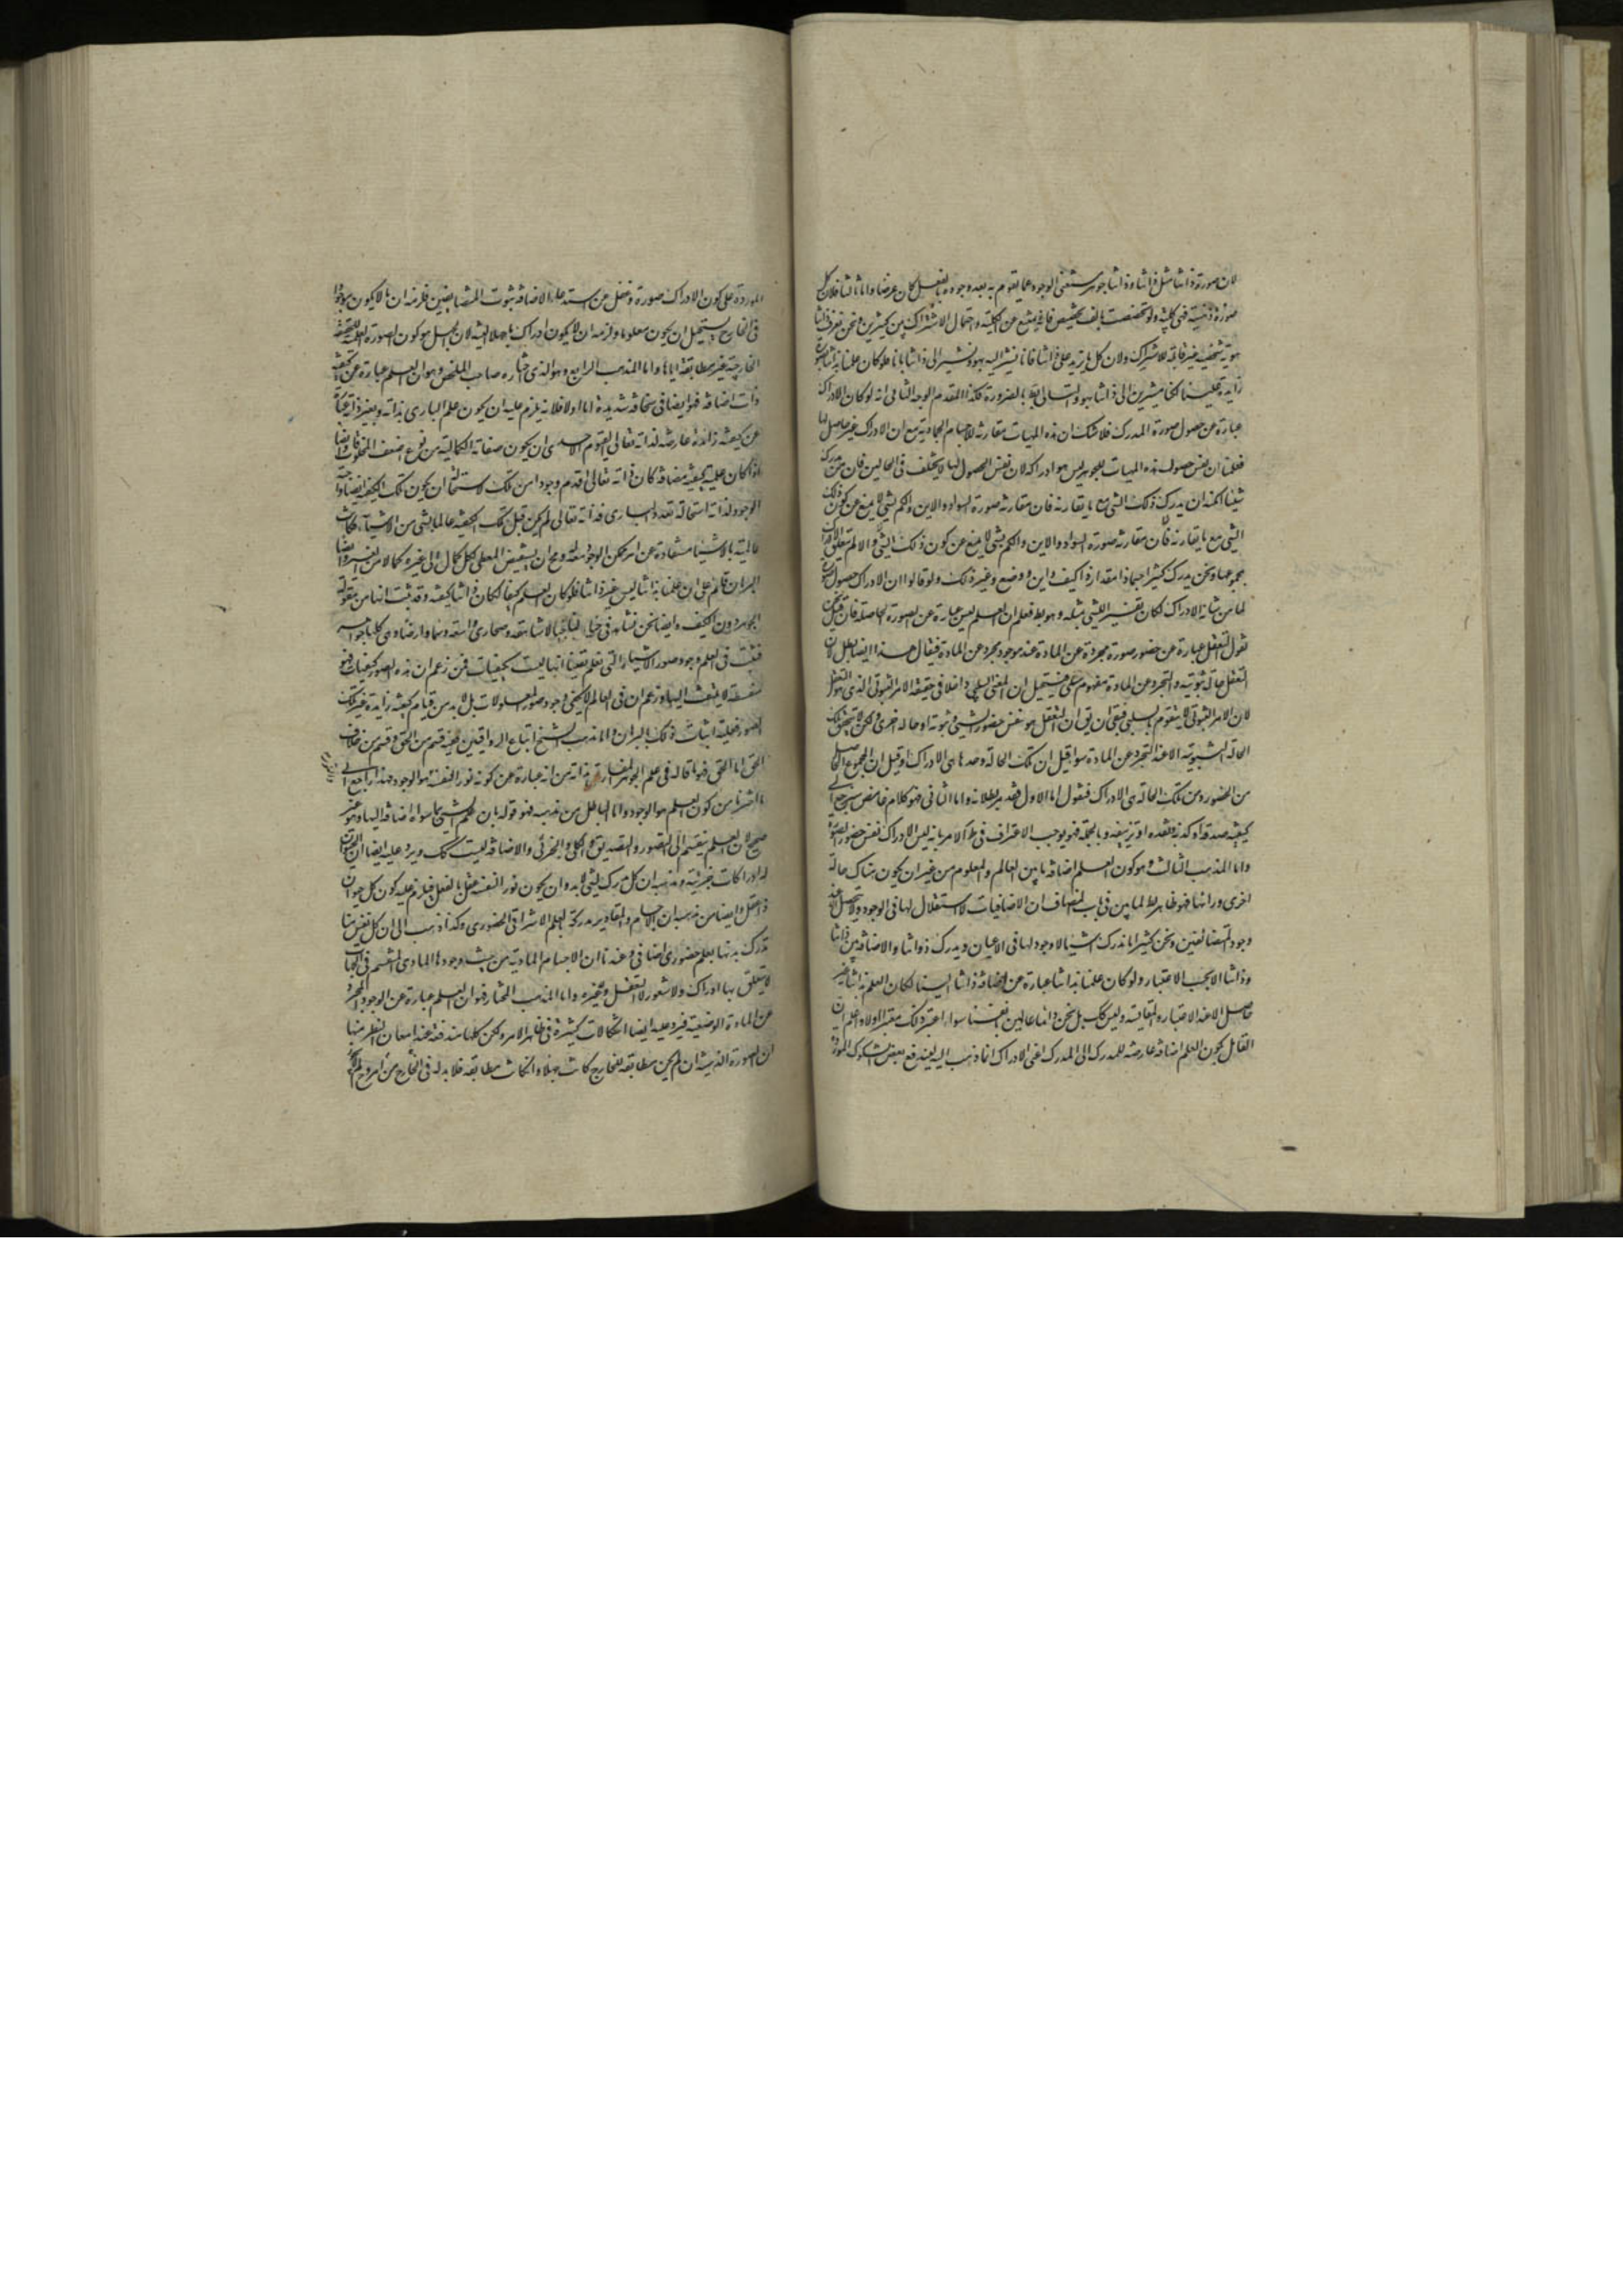 لان صورة ذاتنا مثل ذاتنا وذاتنا جوهر مستغنى الوجود عما يقوم به بعد وجوده بالفعل كان عرضا واما ثالثا فلان كل
صورة ذهنية فهى كلية ولو تخصصت بالف تخصيص فانه لا يمنع عن الكلية واحتمال الاشتراك بين كثيرين ونحن نعرف ذاتنا
هوية شخصية غير قابلة للاشتراك ولان كل ما يزيد على ذاتنا فانا نشير اليه بهو ونشير الى ذاتنا بانا فلو كان علمنا بذاتنا بصورة
زايدة علينا لكنا مشيرين الى ذاتنا بهو والتالى بط بالضرورة فكذا المقدم الوجه الثانى انه لو كان الادراك
عبارة عن حصول صورة المدرك فلا شك ان هذه المهيات مقارنة للاجسام الجمادية مع ان الادراك غير حاصل لها
فعلمنا ان نفس حصول هذه المهيات للجوهر ليس هو ادراكه لان نفس الحصول لها لا يختلف فى الحالين فان من يدرك
شيئا امكنه ان يدرك ذلك الشى مع ما يقارنه فان مقارنة صورة السواد والاين والكم لشى لا يمنع عن كون ذلك
الشى مع ما يقارنه فان مقارنة صورة السواد والاين والكم لشى لا يمنع عن كون ذلك الشى والا لم يتعلق الادراك
بمجموعها ونحن ندرك كثيرا جسما ذا مقدار وذا كيف واين ووضع وغير ذلك ولو قالوا ان الادراك حصول صورة
لما من شانه الادراك لكان تفسير الشى بمثله وهو بط فعلم ان العلم ليس عبارة عن الصورة الحاصلة فان قيل نحن
نقول التعقل عبارة عن حضور صورة مجردة عن المادة عند موجود مجرد عن المادة فيقال هذا ايضا باطل لان
التعقل حالة ثبوتية والتجرد عن المادة مفهوم سلبى فيستحيل ان المعنى السلبى داخلا فى حقيقة الامر الثبوتى الذى هو التعقل
لان الامر الثبوتى لا يتقوم بالسلبى فبقى ان يق ان التعقل هو نفس حضور الشى وثبوته او حالة اخرى ولكن لا يتحقق تلك
الحالة الثبوتية الا عند التجرد عن المادة سوا قيل ان تلك الحالة وحدها هى الادراك او قيل ان المجموع الحاصل
من الحضور ومن تلك الحالة هى الادراك فنقول اما الاول فقد مر بطلانه واما الثانى فهو كلام غامض سنرجع الى
كيفية صدقه او كذبه ونقده او تزييفه وبالجملة فهو يوجب الاعتراف فى ظ الامر بانه ليس الادراك نفس حضور الصورة
واما المذهب الثالث وهو كون العلم اضافة ما بين العالم والمعلوم من غير ان يكون هناك حالة
اخرى ورائها فهو ظاهر البط لما بين فى باب المضاف ان الاضافيات لا استقلال لها فى الوجود ولا تحصل الا عند
وجود المتضائفين ونحن كثيرا ما ندرك اشياء لا وجود لها فى الاعيان وندرك ذواتنا ولا اضافة بين ذاتنا
وذاتنا الا بحسب الاعتبار ولو كان علمنا بذاتنا عبارة عن اضافة ذاتنا الينا لكان العلم بذاتنا غير
حاصل الا عند الاعتبار والمقايسة وليس كك بل نحن دائما عالمين بانفسنا سوا اعتبر ذلك معتبر او لا واعلم ان
القائل بكون العلم اضافة عارضة للمدرك الى المدرك اعنى الادراك انما ذهب اليه ليندفع بعض الشكوك الموردة
الموردة على كون الادراك صورة وغفل عن استدعاء الاضافة ثبوت المتضايفين فلزمه ان ما لا يكون موجودا
فى الخارج يستحيل ان يكون معلوما ولزمه ان لا يكون ادراك ما جهلا البتة لان الجهل هو كون الصورة العلمية للحقيقة
الخارجية غير مطابقة اياها واما المذهب الرابع وهو الذى اختاره صاحب الملخص وهو ان العلم عبارة عن كيفية
ذات اضافة فهو ايضا فى سخافة شديدة اما اولا فلانه يلزم عليه ان يكون علم البارى بذاته وبغير ذاته عبارة
عن كيفية زائدة عارضة لذاته تعالى القيوم الاحدى ان يكون صفاته الكمالية من نوع اضعف المخلوقات وايضا
لو كان علمه كيفية مضافة كان ذاته تعالى اقدم وجودا من تلك لاستحالة ان يكون تلك الكيفية ايضا واجبة
الوجود لذاته استحالة تعدد البارى فذاته تعالى لم يكن قبل تلك الكيفية عالما بشى من الاشياء فكانت
عالميته بالاشياء مستفادة عن امر ممكن الوجود معلول ومح ان يستفيض المعطى لكل كمال الى غيره كمالا من الغير وايضا
البرهان قائم على ان علمنا بذاتنا ليس غير ذاتنا فلو كان العلم كيفا لكان ذاتنا كيفية وقد ثبت انها من مقولة
الجوهر دون الكيف وايضا نحن نشاهد فى خيالنا جبالا شاهقة وصحارى واسعة وسماء وارضا وهى كلها جواهر
فثبت فى العلم وجود صور الاشياء التى نعلم يقينا انها ليست بكيفيات فمن زعم ان هذه الصور كيفيات فهو
سفسطة لا يلتفت اليها وزعم ان فى العالم لا يكفى وجود صور المعلومات بل لا بد من قيام كيفية زايدة غير تلك
الصور فعليه اثبات ذلك بالبرهان واما مذهب الشيخ اتباع الرواقيين ففيه قسم من الحق وقسم من خلاف
الحق اما الحق فهو ما قاله فى علم الجوهر المفارق بذاته من انه عبارة عن كونه نورا لنفسه والنور هو الوجود فهذا راجع الى
ما اخترنا من كون العلم هو الوجود واما الباطل من مذهبه فهو قوله بان علم الشى بما سواه اضافة اليها وهو غير
صحيح لان العلم ينقسم الى التصور والتصديق والكلى والجزئى والاضافة ليست كك ويرد عليه ايضا ان الحيوان
له ادراكات جزئية ومذهبه ان كل مدرك لشى لا بد وان يكون نورا لنفسه عقل بالفعل فيلزم عليه كون كل حيوان
ذا عقل وايضا من مذهبه ان الاجسام والمقادير مدركة بالعلم الاشراقى الحضورى وكذا ذهب الى ان كل نفس منا
تدرك بدنها بعلم حضورى اضافى وعندنا ان الاجسام المادية من حيث وجودها المادى المنقسم فى الجهات
لا يتعلق بها ادراك ولا شعور لا التعقل وغيره واما المذهب المختار فهو ان العلم عبارة عن الوجود المجرد
عن المادة الوضعية فيرد عليه ايضا اشكالات كثيرة فى ظاهر الامر ولكن كلها مندفعة عند امعان النظر منها
ان الصورة الذهنية ان لم يكن مطابقة للخارج كانت جهلا وان كانت مطابقة فلا بد له فى الخارج من امر وح لم لا يجوز